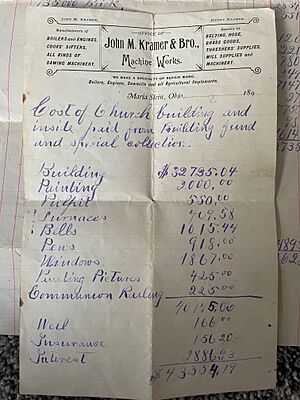 135000 Brick
JOHN M. KRAMER
HENRY KRAMER
OFFICE OF
John M. Kramer & Bro.,
Machine Works.
Manufacturers of
BOILERS and ENGINES,
COOKS' SIFTERS,
ALL KINDS OF
SAWING MACHINERY.
Dealers in
BELTING, HOSE,
BRASS GOODS,
THRESHERS' SUPPLIES,
MILL SUPPLIES and
MACHINERY.
WE MAKE A SPECIALTY OF REPAIR WORK.
Boilers, Engines, Sawmills and all Agricultural Implements.
Maria Stein, Ohio, 189
Cost of Church building and
inside paid from Building fund
and special collection.
Building $32735.04
Painting 2000.00
Pulpit 550.00
Furnaces 409.58
Bells 1015.44
Pews 918.00
Windows 1867.00
Painting Pictures 425.00
Communion Railing 225.00
40145.06
Well 166.00
Insurance 156.20
Interest 2886.93
$43354.19